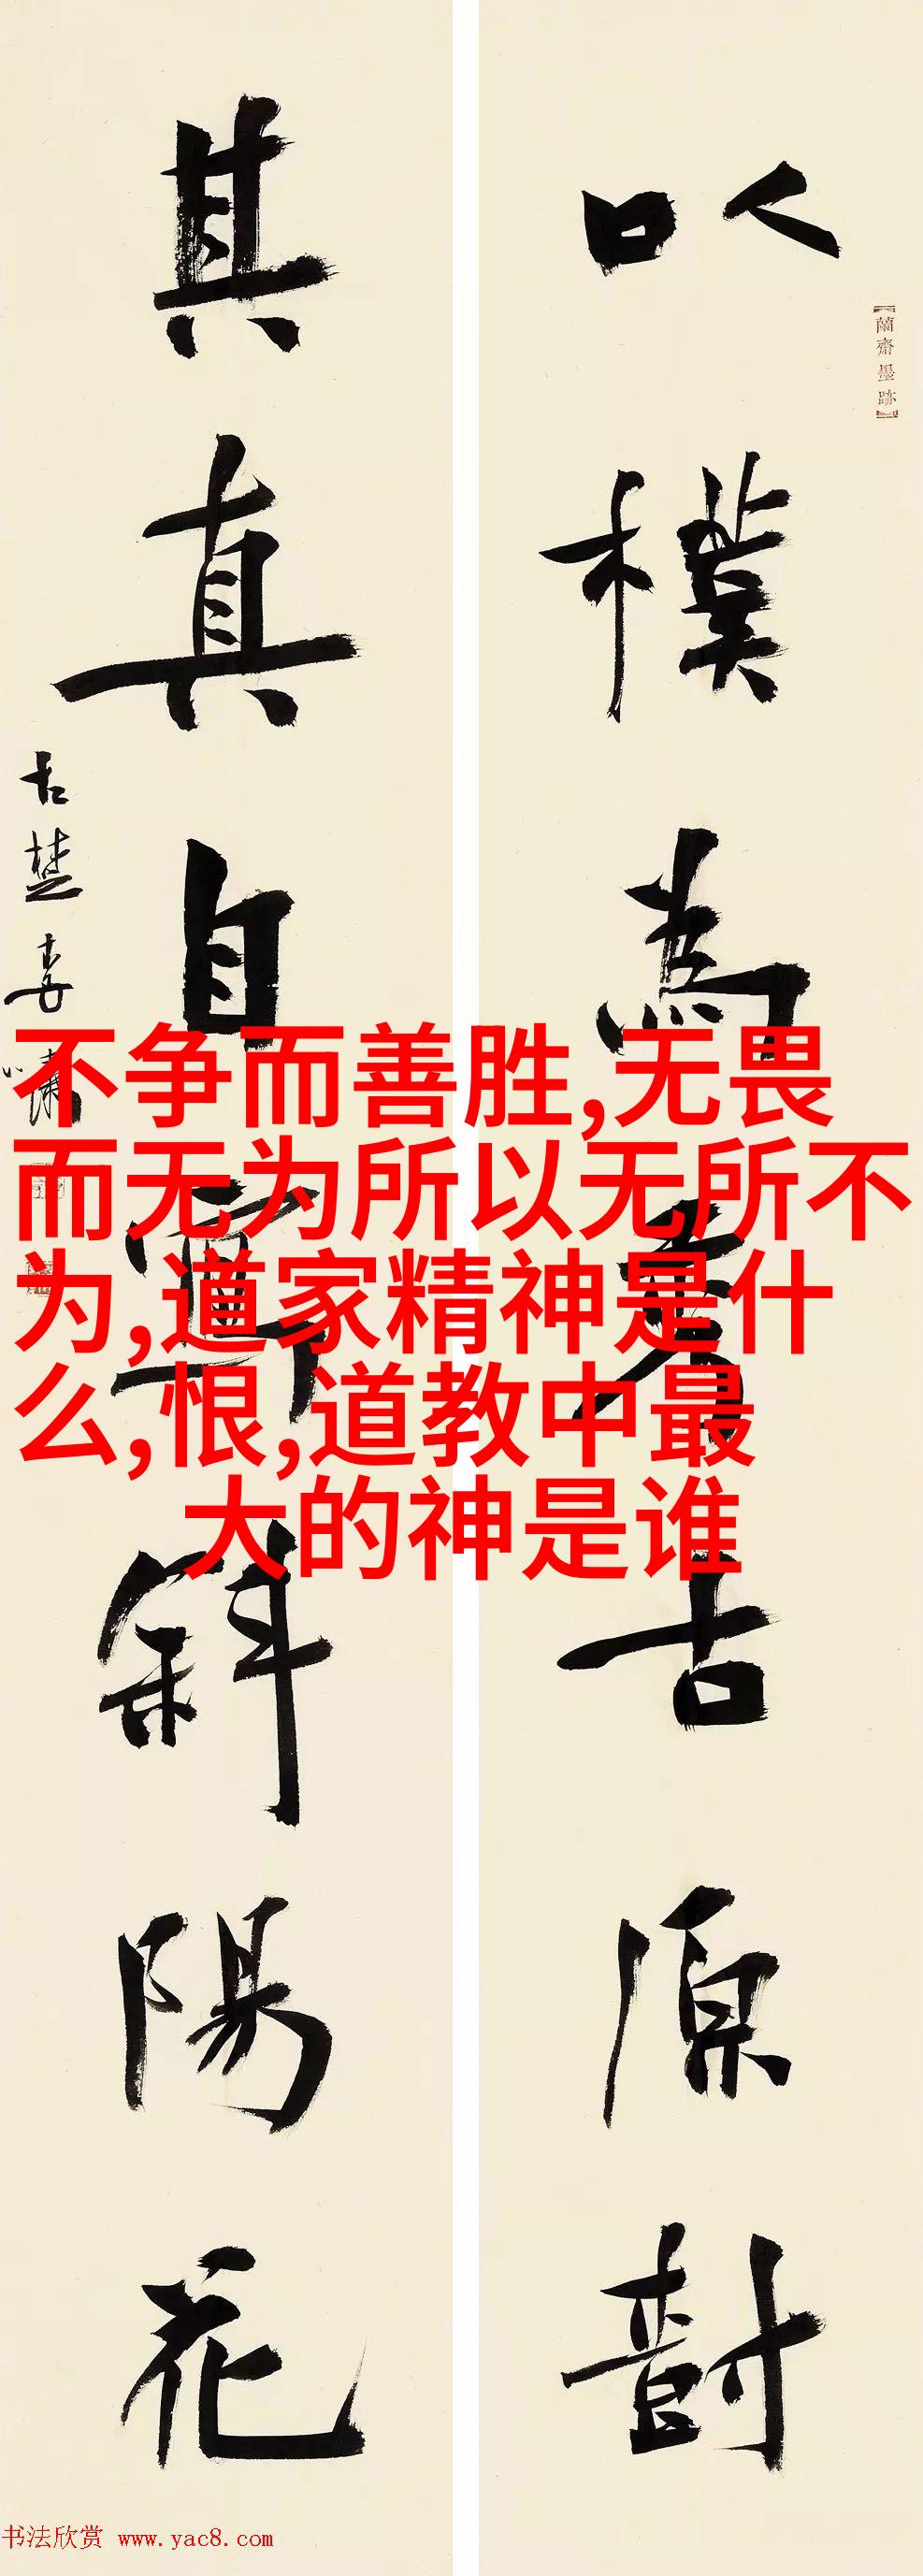 【蘭齋墨跡】
以樸為秀古原樹
其真自寧斜陽花
古楚李
不争而善胜,无畏
而无为所以无所不
为,道家精神是什
么,恨,道教中最
大的神是谁
书法欣赏 www.yac8.com